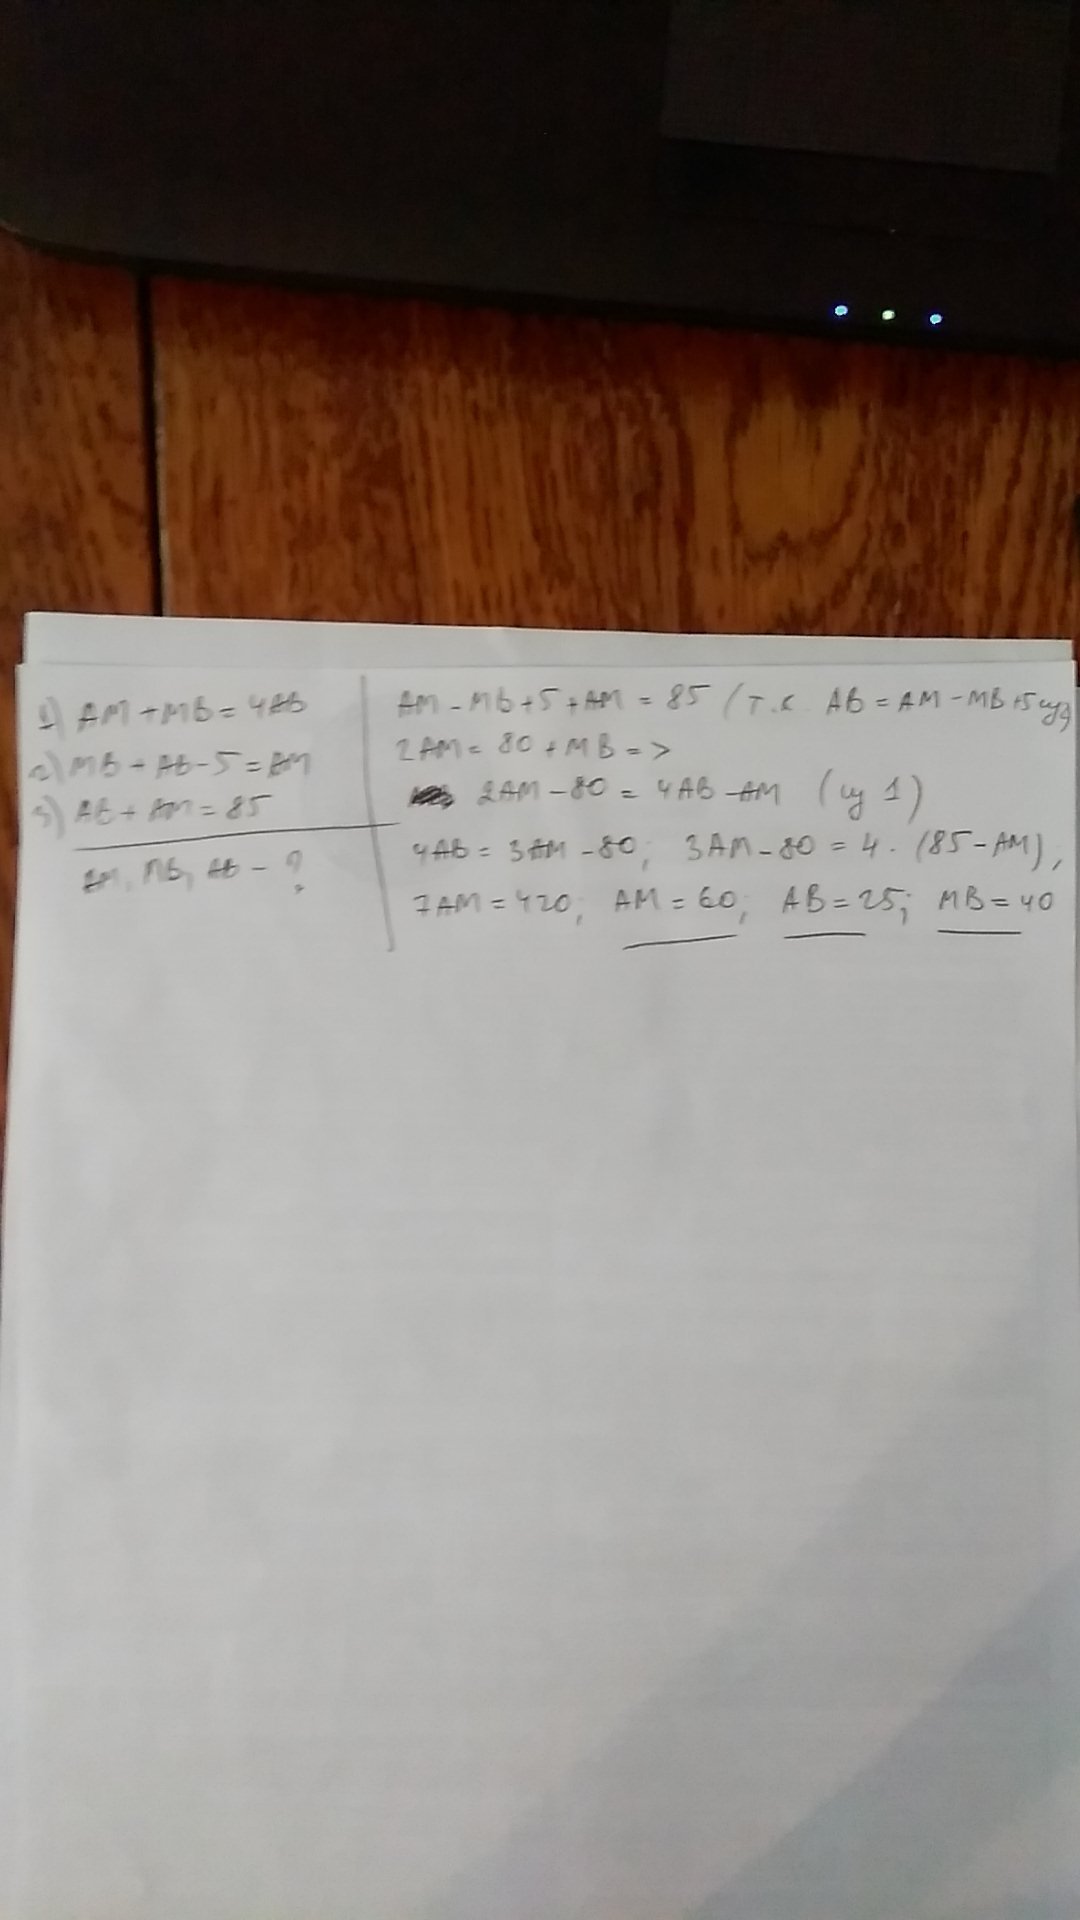 1) AM + MB = 4AB
2) MB + AB - 5 = AM
3) AB + AM = 85
AM, MB, AB - ?
AM - MB + 5 + AM = 85 (т.к. AB = AM - MB + 5 из 2)
2AM = 80 + MB =>
2AM - 80 = 4AB - AM (из 1)
4AB = 3AM - 80; 3AM - 80 = 4 · (85 - AM);
7AM = 420; AM = 60; AB = 25; MB = 40